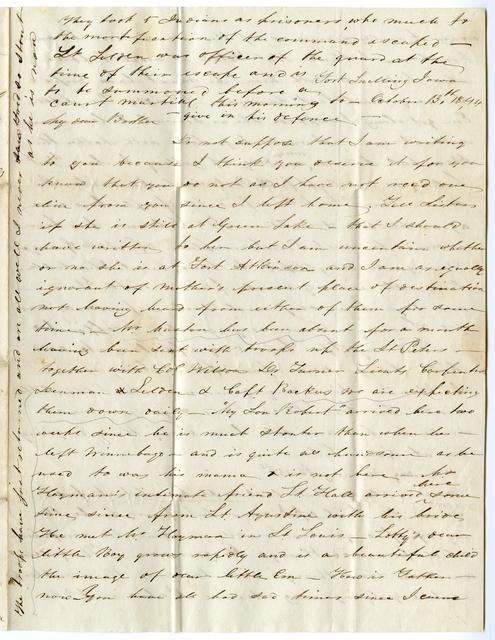 They took 5 Indians as prisoners, who much to
the mortification of the command escaped —
Lt Selden was officer of the guard at the
time of their escape and is
to be summoned before a
court martial this morning to —
give in his defence —
Fort Snelling Iowa
October 13th 1844
My dear Brother
Do not suppose that I am writing
to you because I think you deserve it for you
know that you do not as I have not recd one
line from you since I left home. Tell Sister
if she is still at Green Lake — that I should
have written to her but I am uncertain whether
or no she is at Fort Atkinson and I am equally
ignorant of Mother's present place of destination
not having heard from either of them for some
time. Mr has been absent for a month
having been sent with troops up the St Peters
together with Col Wilson Dr Turner Lieuts Carpenter
& Selden & Capt Backus we are expecting
them down daily — My Son Robert arrived here two
weeks since he is much stouter than when he —
left Winnebago — and is quite as handsome as he
used to was his mama is not here — Mr
Hayman's intimate friend Lt Hall arrived here some
time since from St Agustine with his bride
He met Mr Hayman in St Louis — Lotty's dear
little Boy grows rapidly and is a beautiful child
the image of dear little Em — How is Father
now — You have all had sad times since I came
The Troops have just returned and are all well I never saw so stout
as he is now